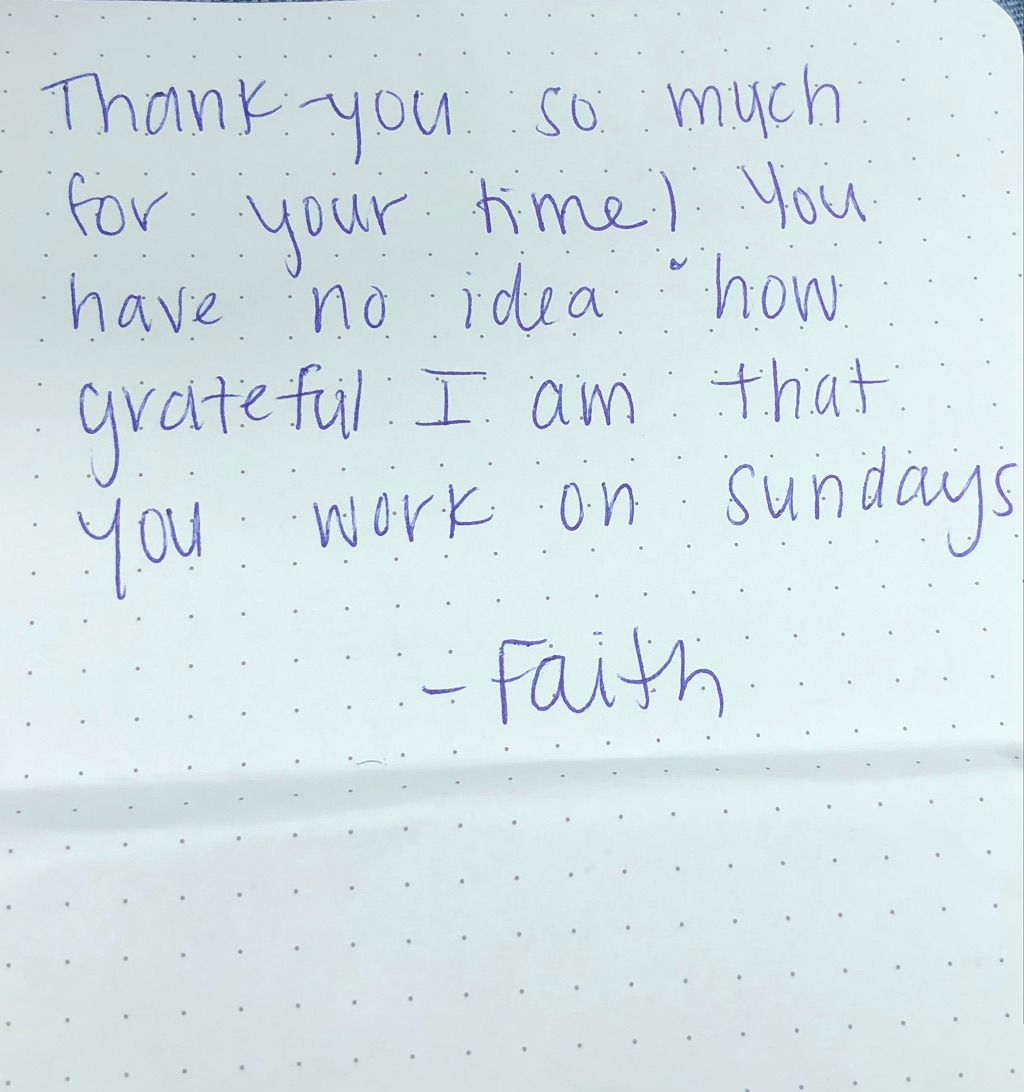 Thank you so much
for your time! You
have no idea how
grateful I am that
you work on sundays
-Faith